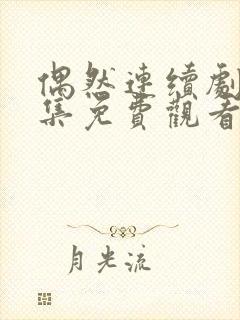 偶然連續劇
集免費觀看
月光流